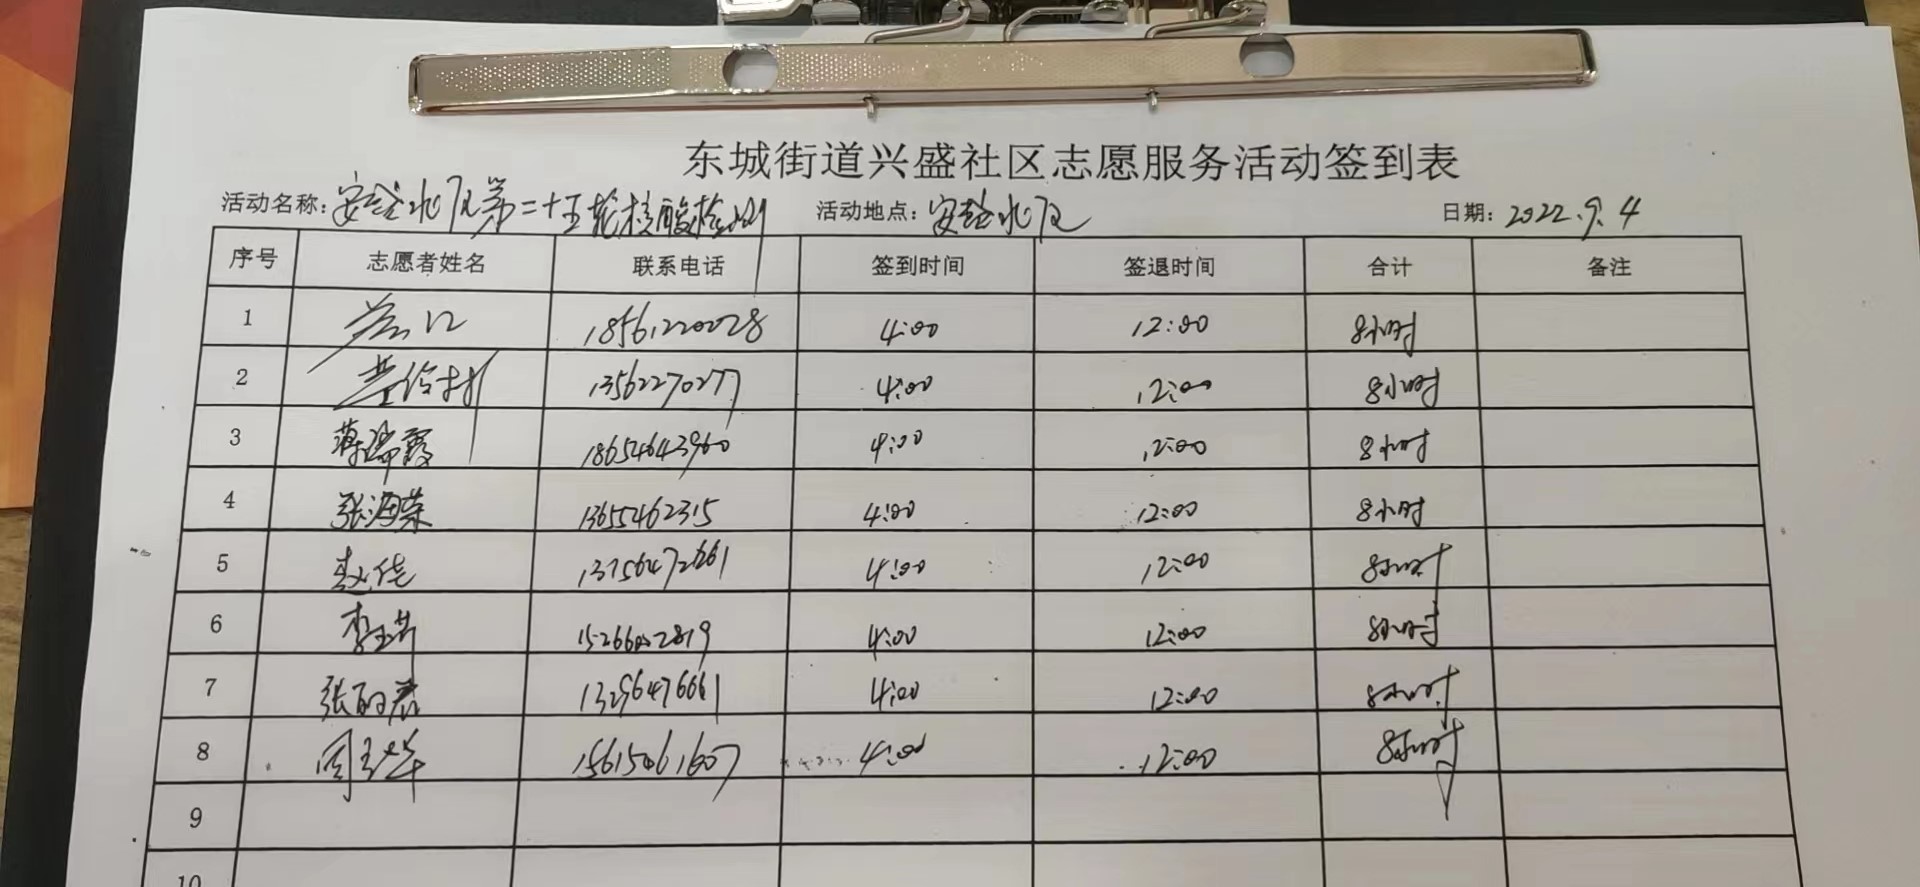 东城街道兴盛社区志愿服务活动签到表
活动名称: 第二十五轮核酸检测 活动地点: 日期: 2022.9.4
序号 志愿者姓名 联系电话 签到时间 签退时间 合计 备注
1 18561220028 4:00 12:00 8小时
2 13562270277 4:00 12:00 8小时
3 蒋瑞霞 18654643960 4:00 12:00 8小时
4 张海荣 13655462315 4:00 12:00 8小时
5 赵佳 4:00 12:00 8小时
6 4:00 12:00 8小时
7 13296476661 4:00 12:00 8小时
8 周玉华 15615461607 4:00 12:00 8小时
9
10